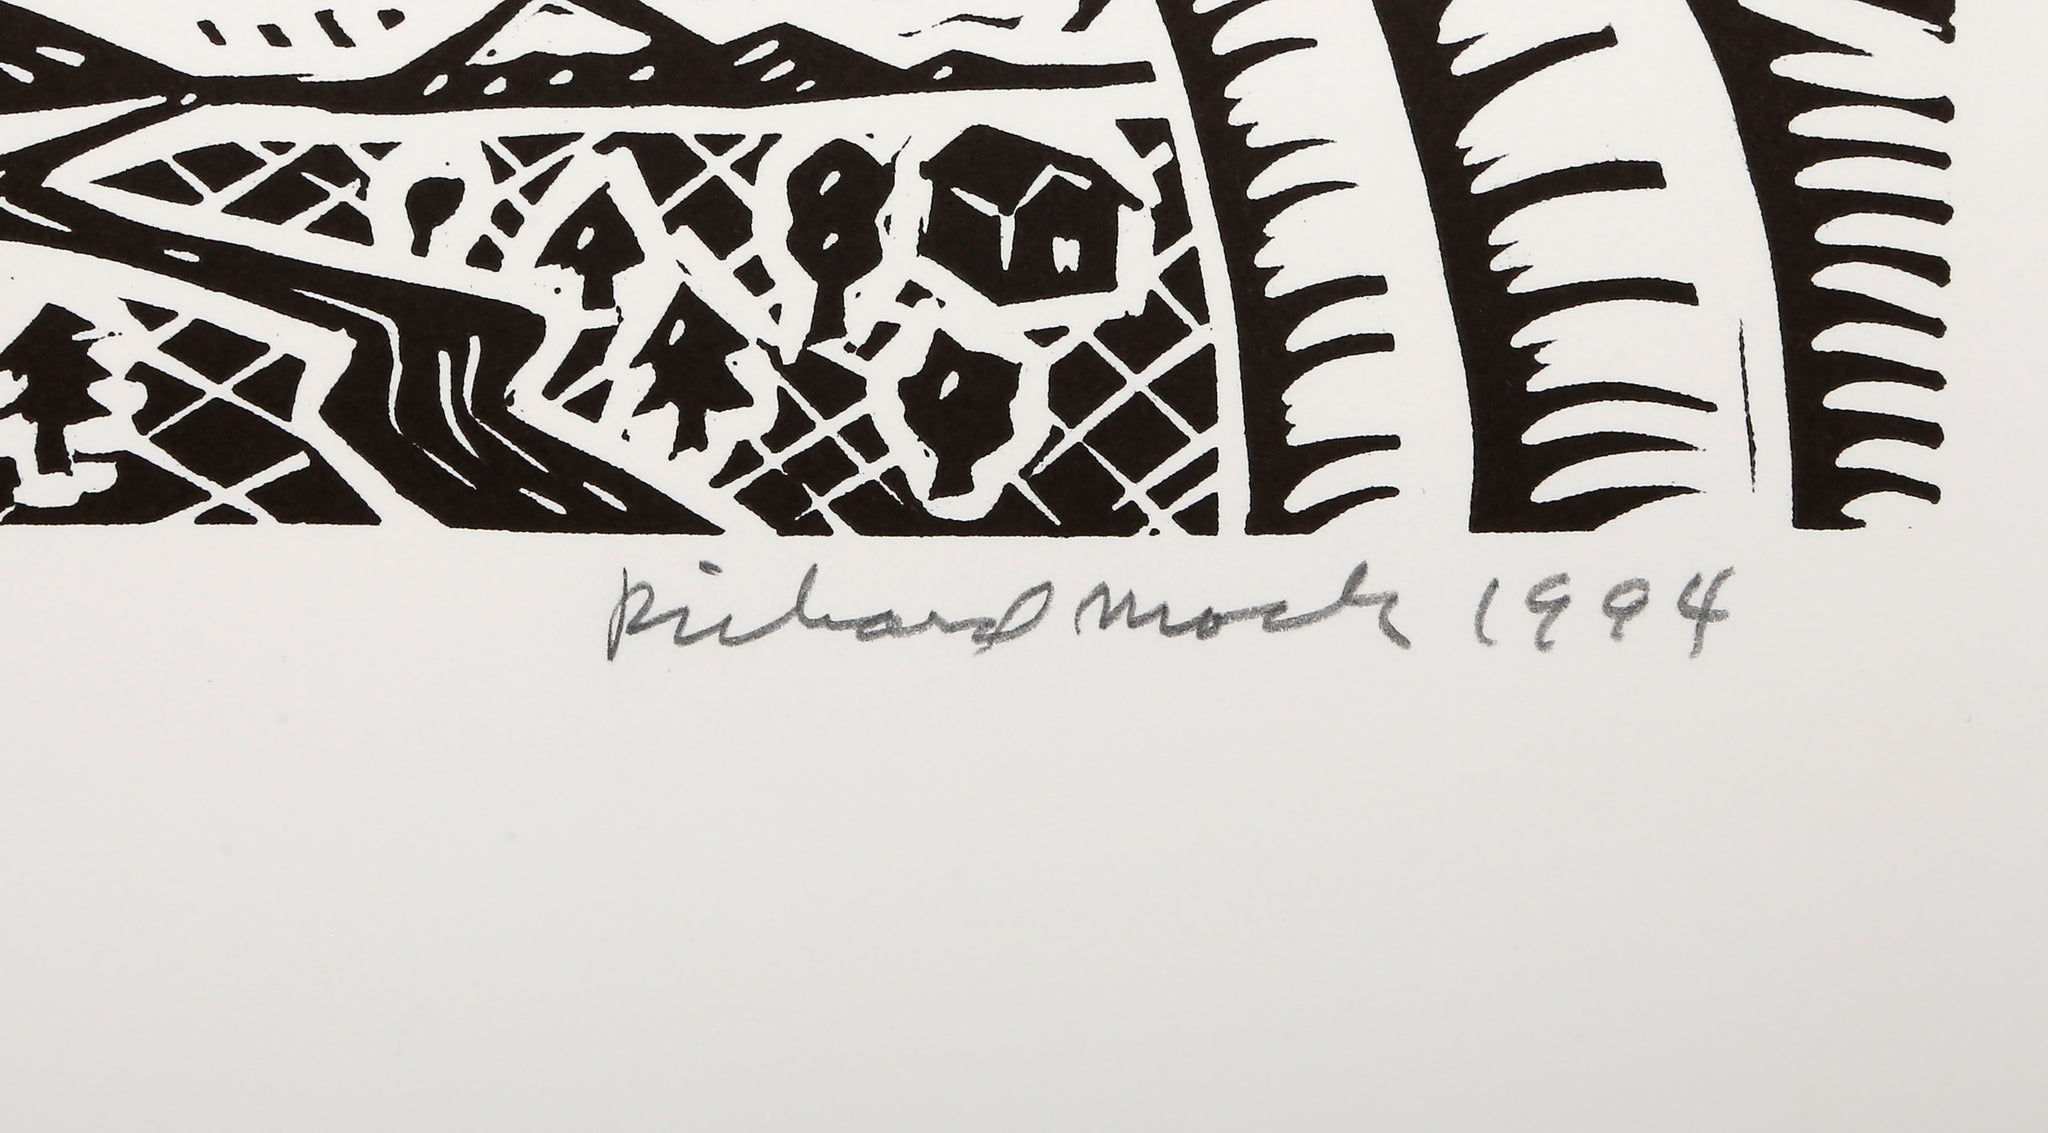 Richard Mock 1994